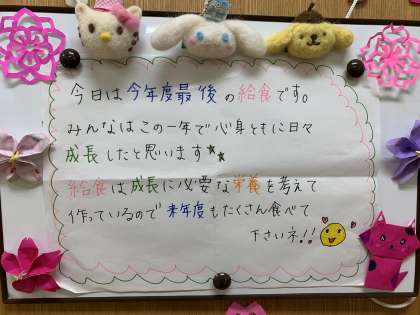 今日は今年度最後の給食です。
みんなはこの一年で心身ともに日々
成長したと思います★★
給食は成長に必要な栄養を考えて
作っているので来年度もたくさん食べて
下さいネ!!